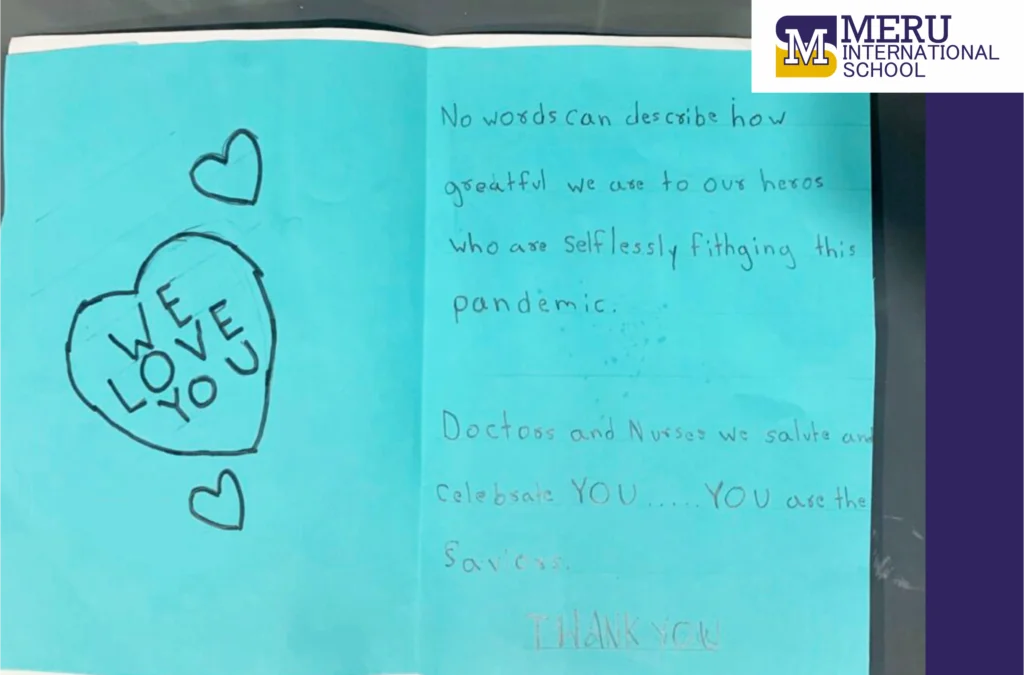 MERU
INTERNATIONAL
SCHOOL
WE
LOVE
YOU
No words can describe how
greatful we are to our heros
who are selflessly fithging this
pandemic.
Doctors and Nurses we salute and
Celebrate YOU ..... YOU are the
Saviors.
THANK YOU